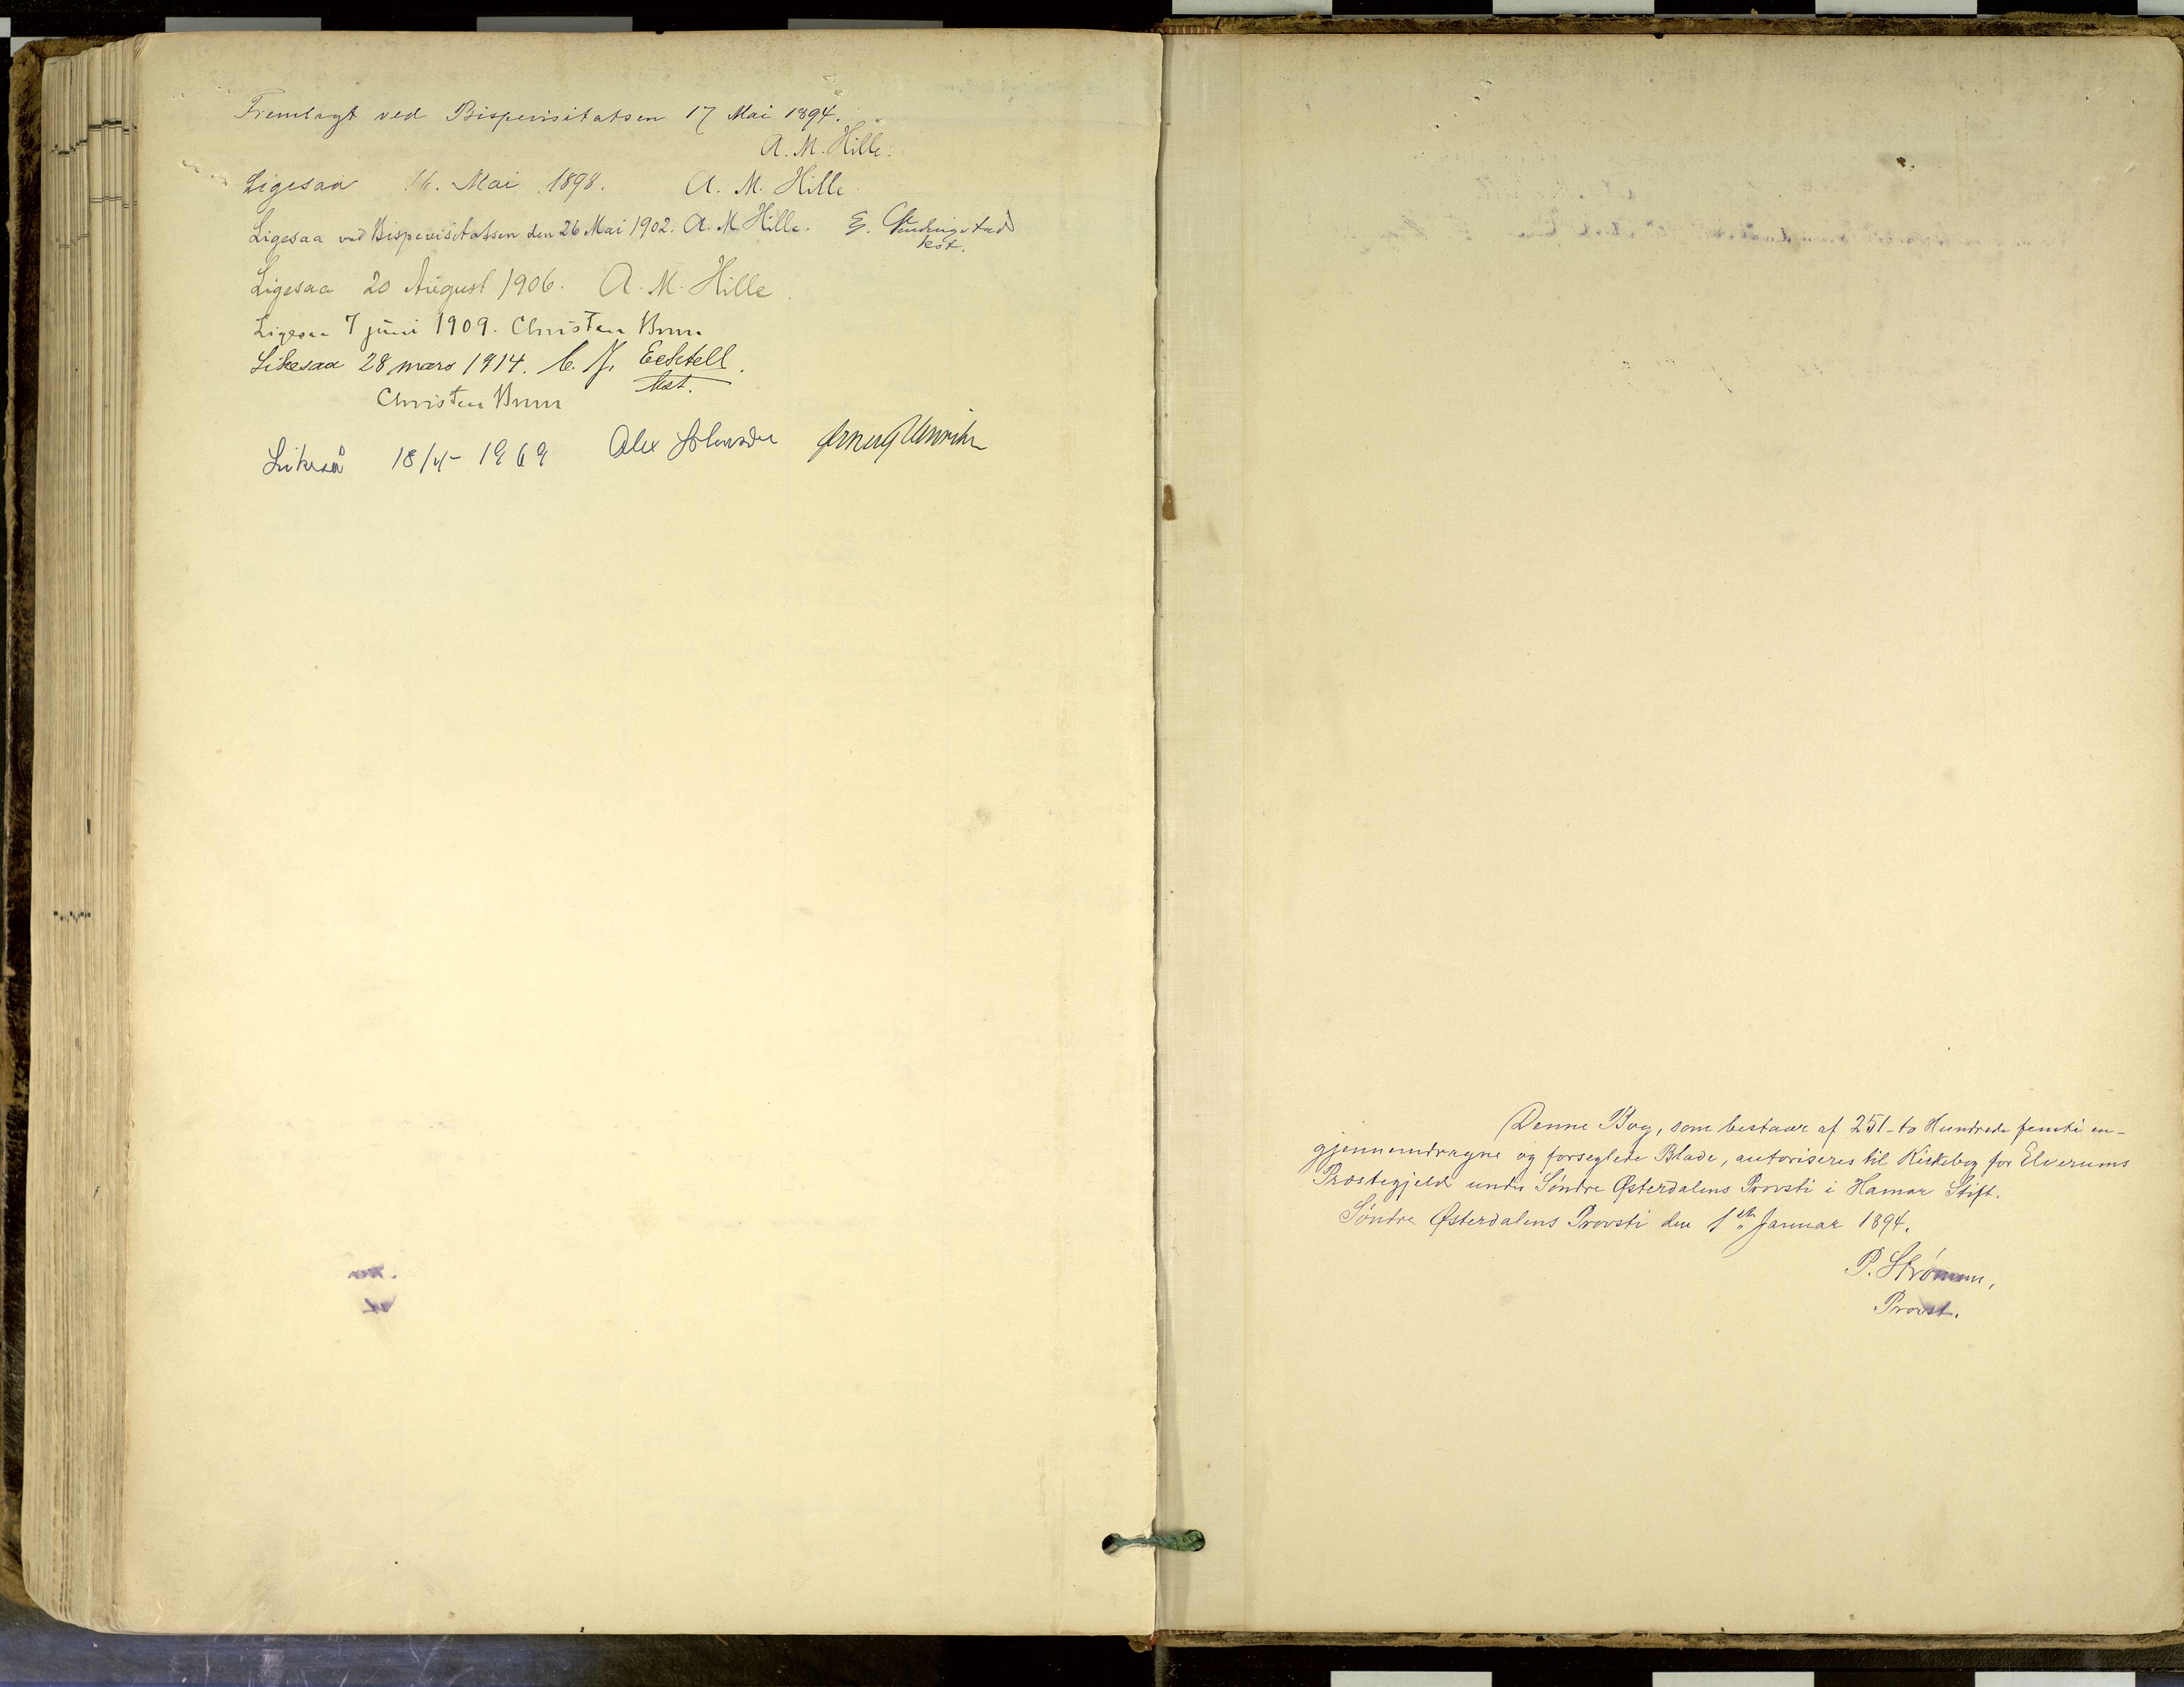 Fremlagt ved Bispevisitatsen 17 Mai 1894.
A. M. Hille.
Ligesaa 16. Mai 1898. A. M. Hille.
Ligesaa ved Bispevisitatsen den 26 Mai 1902. A. M. Hille. E.
kst.
Ligesaa 20 August 1906. A. M. Hille.
Ligesaa 7 juni 1909. Christen Brun
Likesaa 28 mars 1914. C. J. Ecktell.
kst.
Christen Brun
Likeså 18/4- 1969 Alex Johnson
Denne Bog, som bestaar af 251 - to Hundrede femti en -
gjennemdragne og forseglede Blade, autoriseres til Kirkebog for Elverums
Præstegjeld under Søndre Østerdalens Provsti i Hamar Stift.
Søndre Østerdalens Provsti den 1ste Januar 1894.
P. Strømme,
Provst.